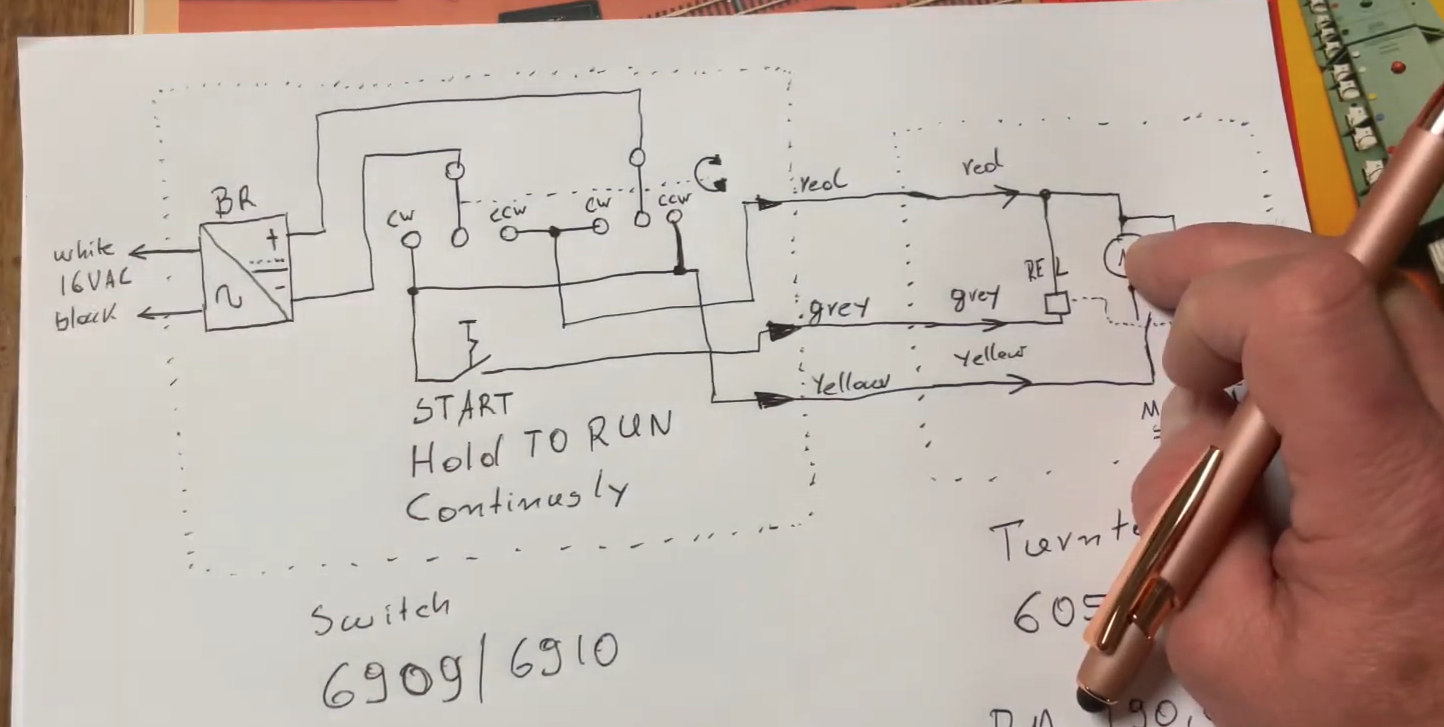 BR
white
16VAC
black
+
−
~
CW
CCW
CW
CCW
red
red
REL
grey
grey
Yellow
Yellow
START
Hold TO RUN
Continusly
Switch
6909/6910